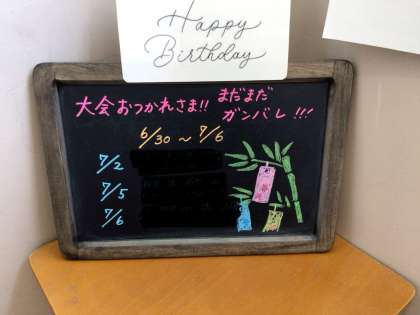 Happy
Birthday
大会おつかれさま!! まだまだ
ガンバレ!!!
6/30～7/6
7/2
7/5
7/6